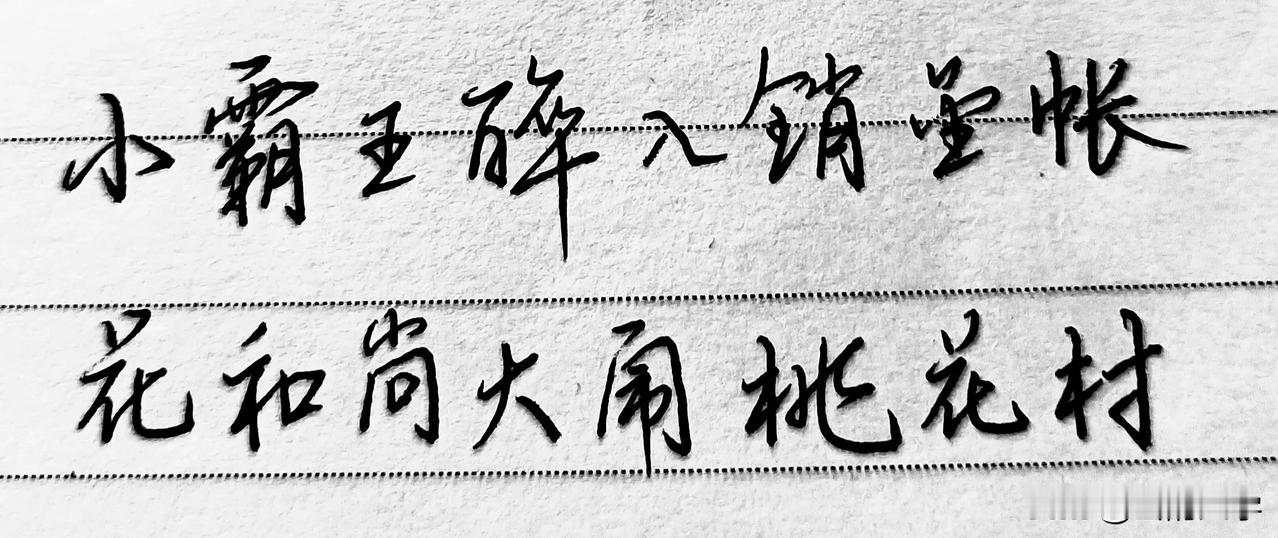 小霸王醉入销金帐
花和尚大闹桃花村